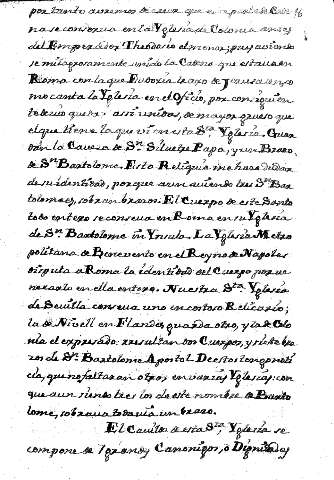 por tanto avremos de creer que es parte de Cade
na se conserva en la Yglesia de Colonia antes
del Emperador Theodosio el menor; pues aviendo
se milagrosamente unido la Cadena que estava en
Roma con la que Eudoxia trajo de Jerusalen, so
mo canta la Yglesia en el Oficio, por consiguien
te de uio quedar assi unidos, de mayor grueso que
el que tiene la que vi en esta Sta. Yglesia. Guar
dan la Caveza de Sn. Silvestre Papa, y un Brazo
de Sn. Bartolome. Esta Reliquia me haze dudar
de su identidad, porque aun aviendo tres Sn. Bar
tolomes, sobran brazos. El Cuerpo de este Santo
todo entero se conserva en Roma en su Yglesia
de Sn. Bartolome in Ynsula. La Yglesia Metro
politana de Benevento en el Reyno de Napoles
disputa a Roma la identidad del Cuerpo por ve
nerarlo en ella entero. Nuestra Sta. Yglesia
de Sevilla conserva uno en costoso Relicario;
la de Nivell en Flandes guarda otro, y la de Colo
nia el expresado: resultan dos Cuerpos, y siete bra
zos de Sn. Bartolome Apostol. De estos tengo noti
cia, que no faltaran otros en varias Yglesias: con
que aun siendo tres los de este nombre de Barto
lome, sobrava todavia un brazo.
El Cavildo de esta Sta. Yglesia se
compone de Canonigos, o Dignidades